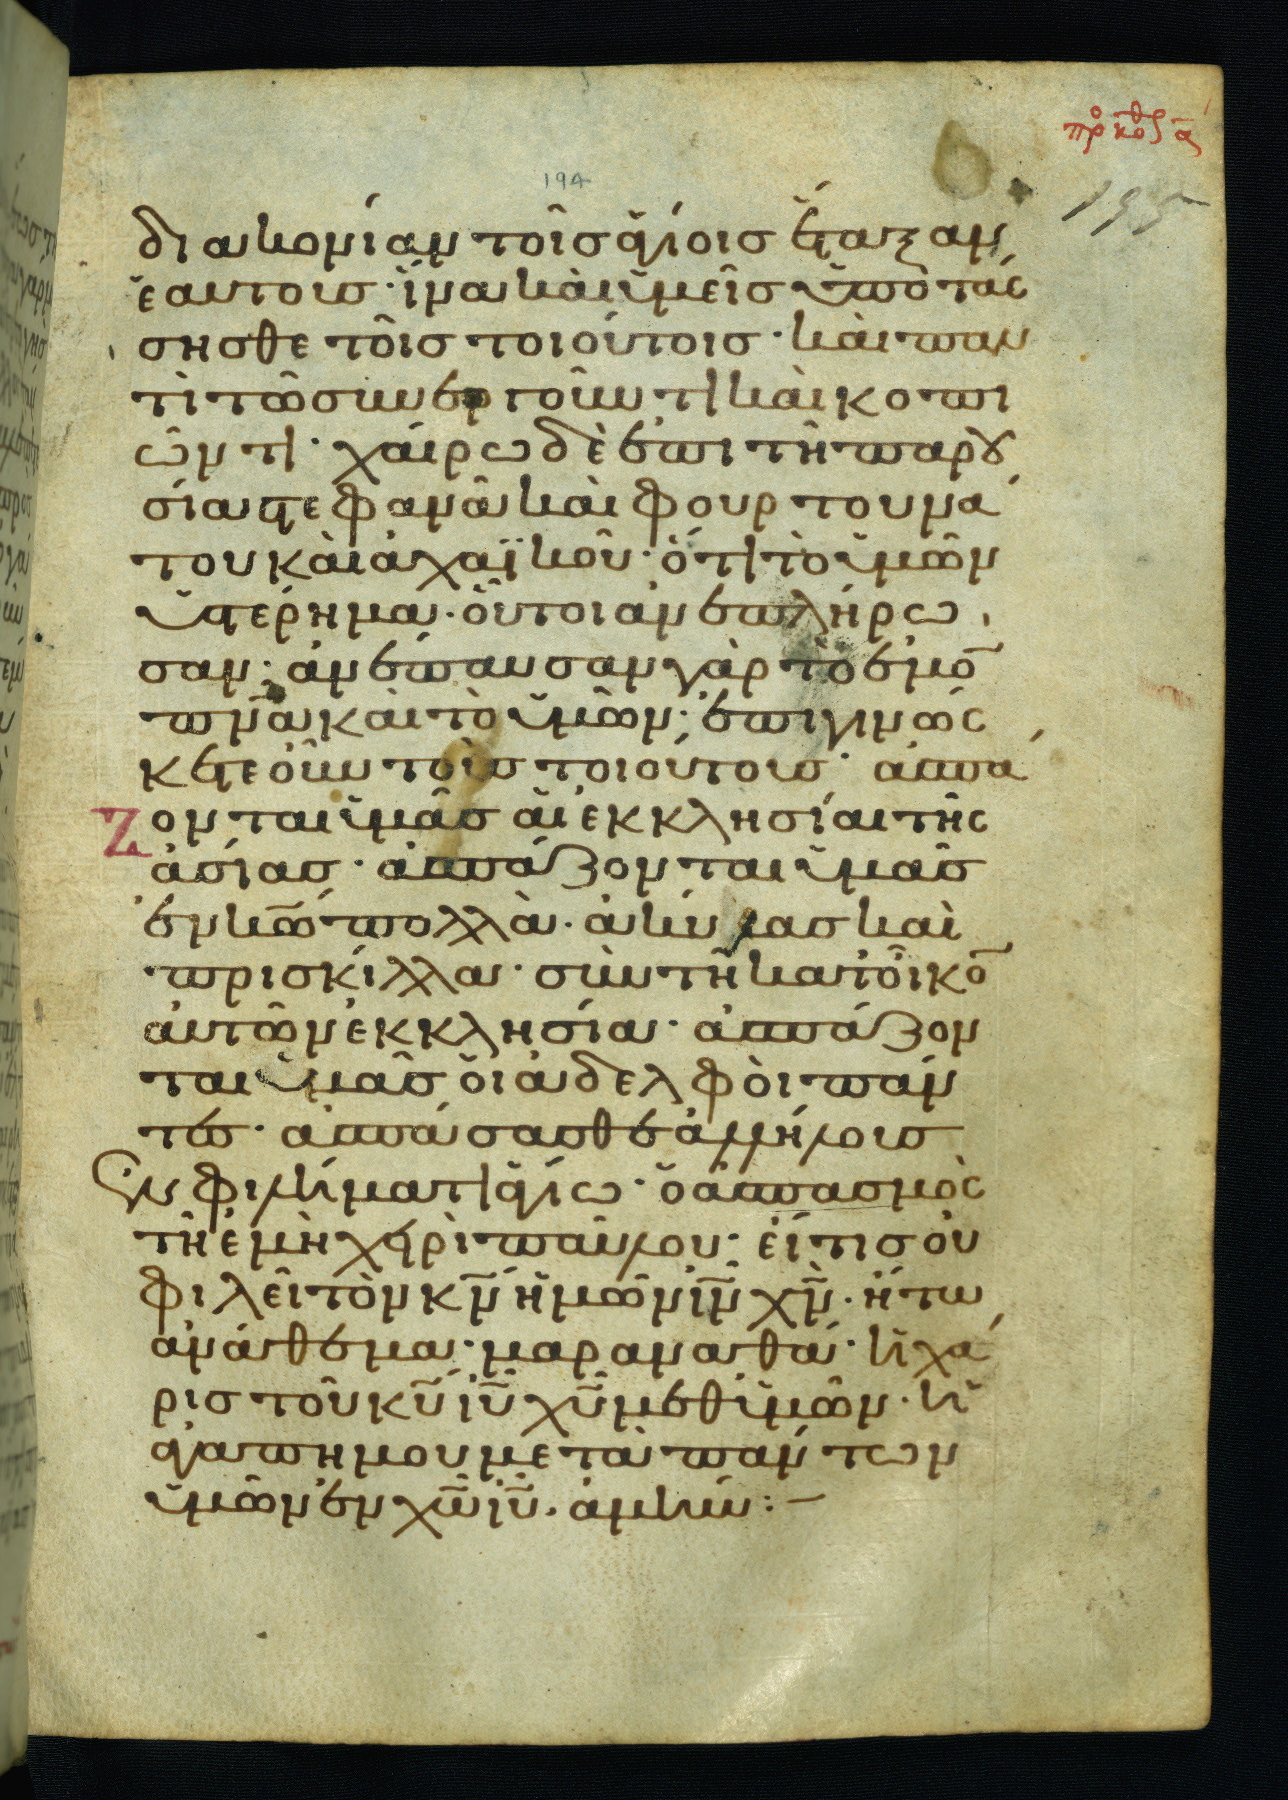 προς κορινθ α
195
194
διακονίαν τοῖς ἁγίοις ἔταξαν
ἑαυτους · ἵνα καὶ ὑμεῖς ὑποτάσ
σησθε τοῖς τοιούτοις · καὶ παν
τὶ τῶ συνεργοῦντι καὶ κοπι
ῶντι · χαίρω δὲ ἐπι τῆ παρου
σία στεφανᾶ καὶ φουρτουνά
του καὶ ἀχαϊκοῦ · ὅτι τὸ ὑμῶν
ὑστέρημα · οὗτοι ἀνεπλήρω
σαν · ἀνέπαυσαν γὰρ τὸ ἐμὸ
πνᾶ καὶ τὸ ὑμῶν · ἐπιγινώσ
κετε οὖν τοὺς τοιούτους · ἀσπά
ζονται ὑμᾶς αἱ ἐκκλησίαι τῆς
ἀσίας · ἀσπάζονται ὑμᾶς
ἐν κω πολλὰ · ἀκύλας καὶ
πρισκίλλα · σὺν τῆ κατ οἶκο
αὐτῶν ἐκκλησία · ἀσπάζον
ται ὑμᾶς οἱ ἀδελφοὶ πάν
τες · ἀσπάσασθε ἀλλήλους
ἐν φιλήματι ἁγίω · ὁ ἀσπασμὸς
τῆ ἐμὴ χειρὶ παύλου · εἴ τις οὐ
φιλεῖ τὸν κν ἡμῶν ιν χν · ἤτω
ἀνάθεμα · μαραναθά · ἡ χά
ρις τοῦ κυ ιυ χυ μεθ ὑμῶν · ἡ
ἀγαπη μου μετὰ πάντων
ὑμῶν ἐν χω ιυ · ἀμήν :—